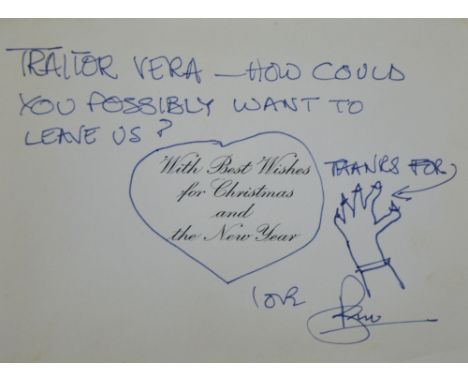 TRAITOR VERA — HOW COULD
YOU POSSIBLY WANT TO
LEAVE US?
With Best Wishes
for Christmas
and
the New Year
THANKS FOR
LOVE